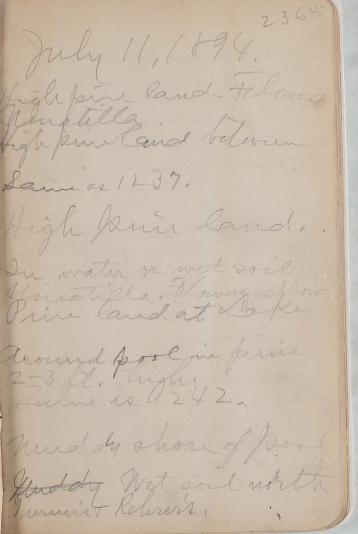 236
July 11, 1894.
High pine land. Flowers
Umatilla.
High pine land between
Same as 1237.
High pine land.
In water or wet soil
Umatilla. Flowers
Pine land at Lake
Around pool in pine
2-3 ft. high.
Same as 1242.
Muddy shore of pool
Muddy Wet soil north